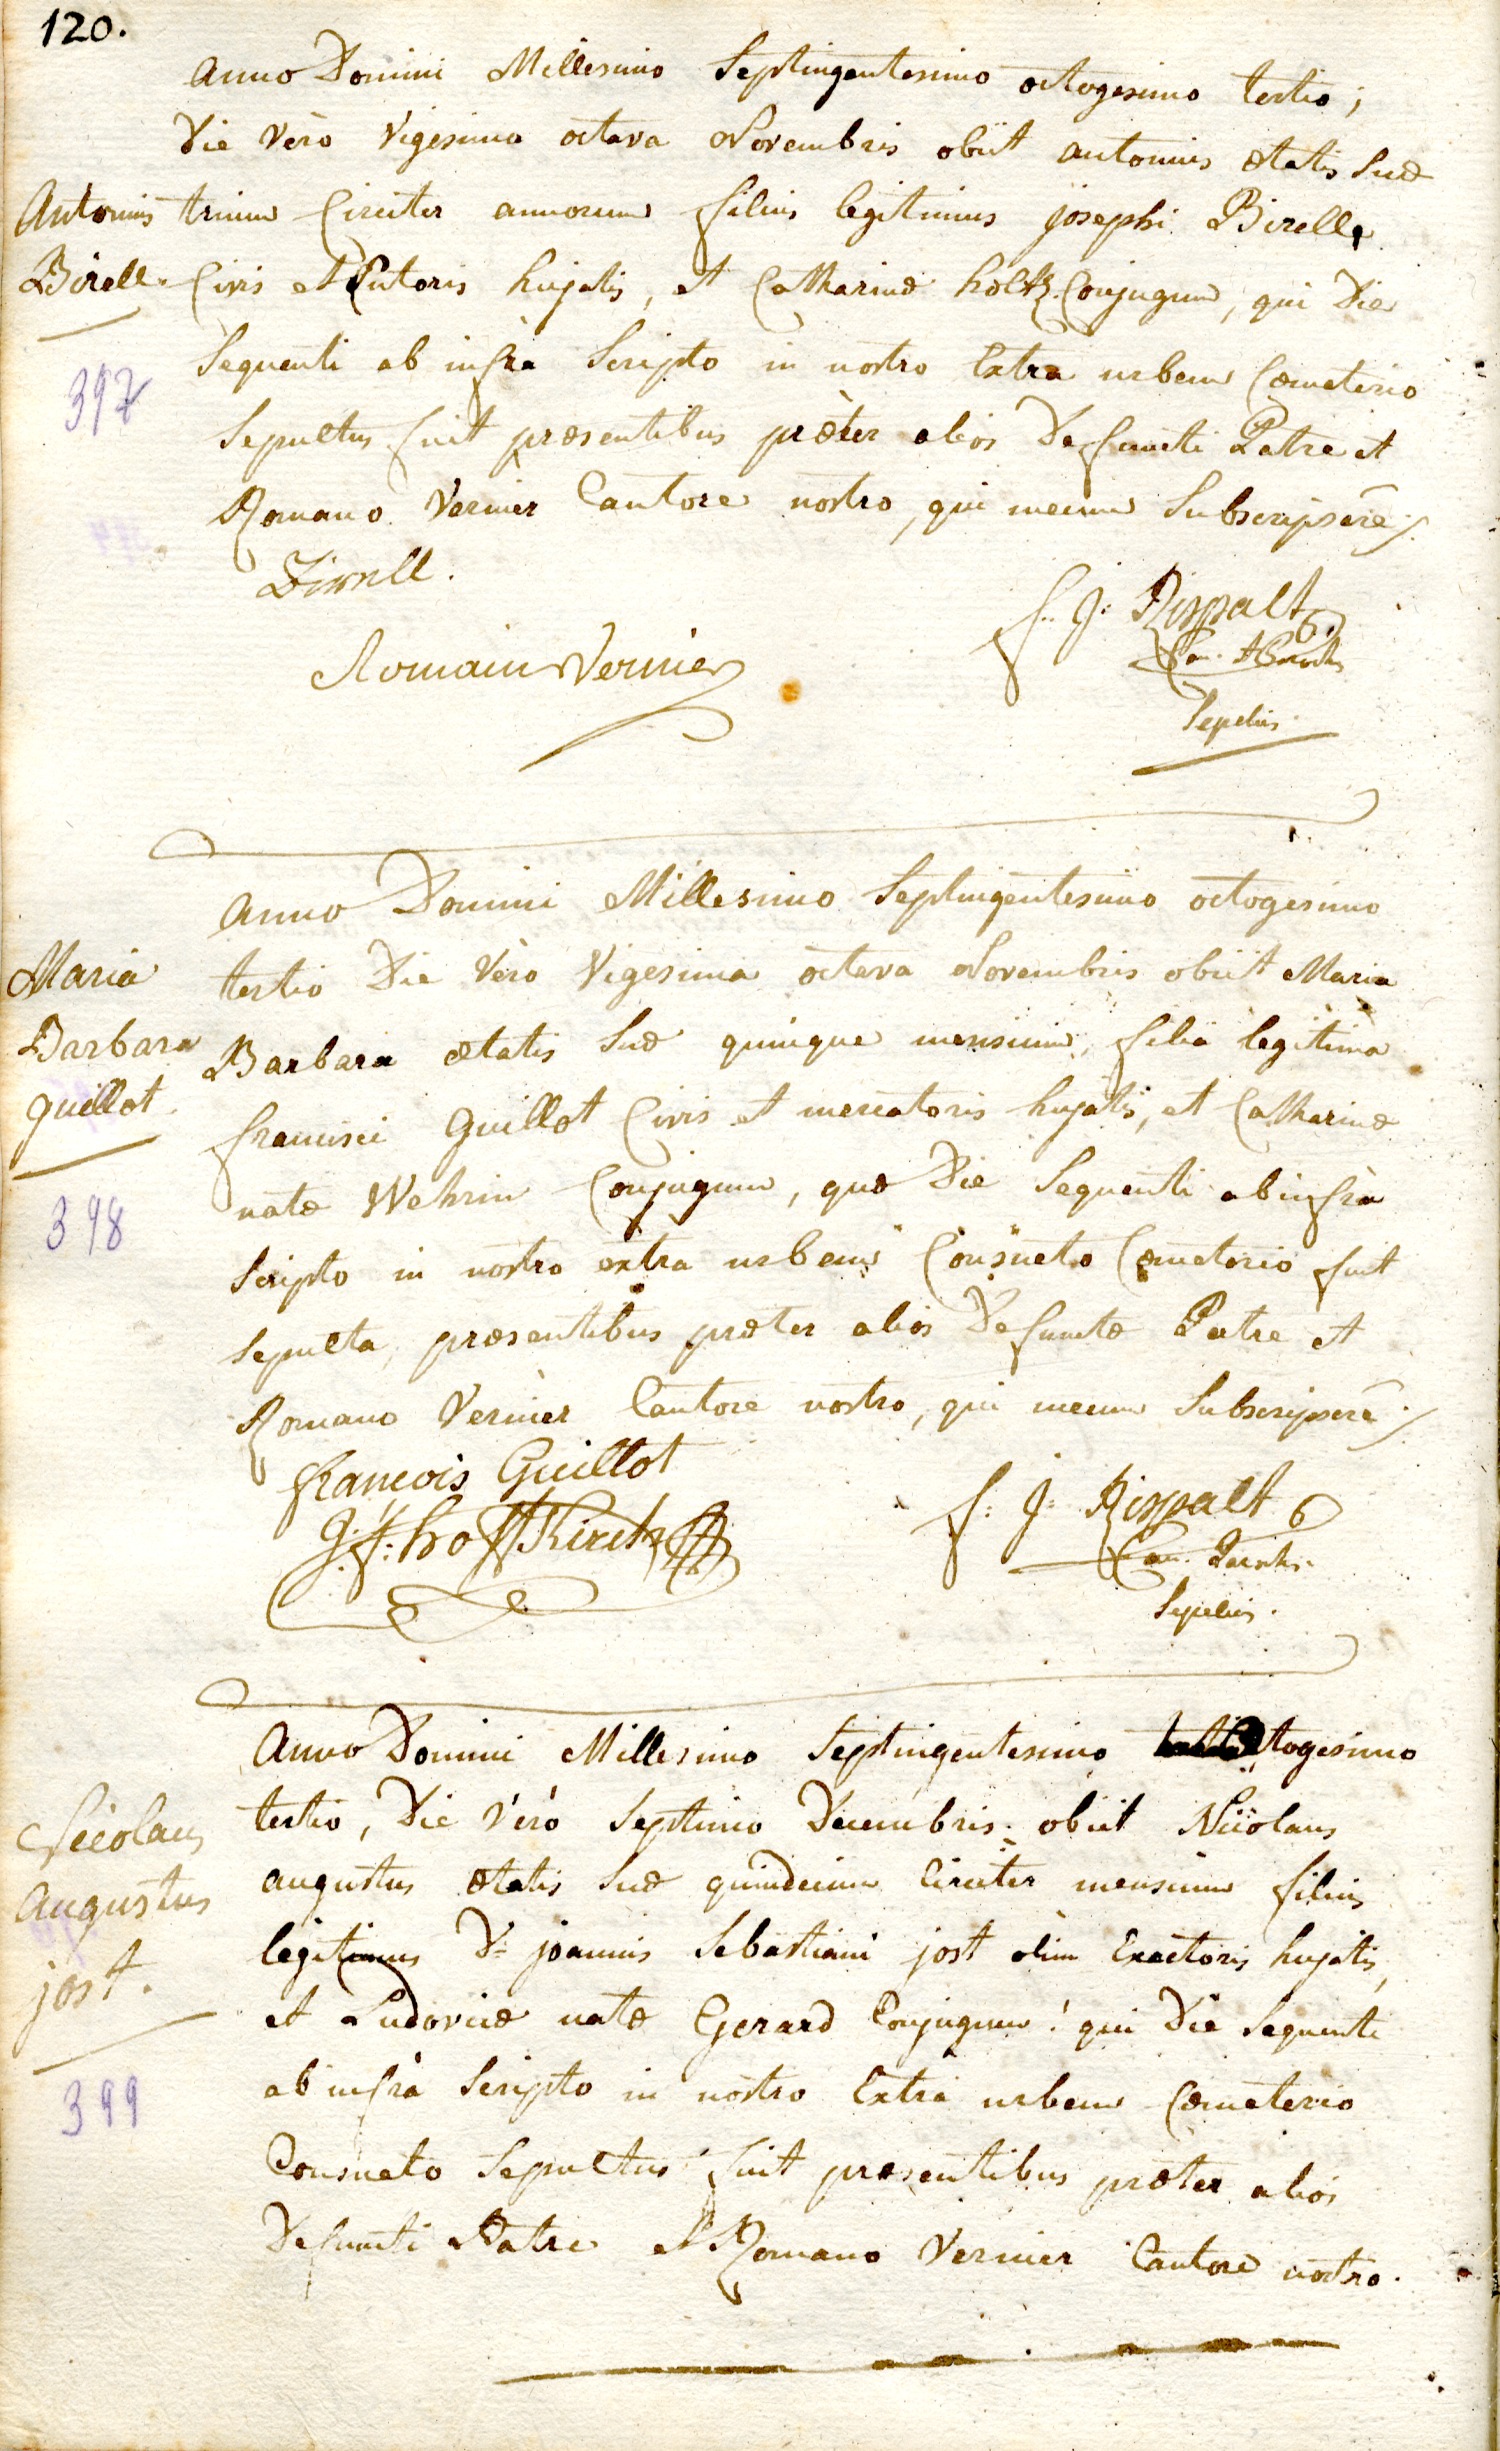 120.
Anno Domini Millesimo Septingentesimo octogesimo tertio;
Die vèro vigesima octava Novembris obiit antonius ætatis suæ
Antonius
Birell.
trium circiter annorum filius legitimus josephi Birelle
Civis et Sutoris hujatis, et Catharinæ holtz Conjugum, qui Die
sequenti ab infrà scripto in nostro Extra urbem Cœmeterio
397
sepultus fuit præsentibus præter alios Defuncti Patre et
Romano Vernier Cantore nostro, qui mecum subscripsere ./.
Birell.
Romain Vernier
f. J: Rispalt
Can.
sepeliens.
Anno Domini Millesimo septingentesimo octogesimo
tertio Die vèro vigesima octava Novembris obiit Maria
Maria
Barbara
guillot
Barbara ætatis suæ quinque mensium, filia legitima
francisci Guillot Civis et mercatoris hujatis, et Catharinæ
natæ Wehrin Conjugum, quæ Die sequenti ab infrà
398
scripto in nostro extra urbem Consueto Cœmeterio fuit
sepulta, præsentibus præter alios Defunctæ Patre et
Romano Vernier Cantore nostro, qui mecum subscripsere ./
francois Guillot
f: J: Rispalt
Can. Parochi.
sepeliens.
Anno Domini Millesimo septingentesimo octogesimo
tertio, Die vèrò septimo Decembris obiit Nicolaus
Nicolaus
Augustus
jost.
augustus ætatis suæ quindecim circiter mensium filius
legitimus D: joannis sebastiani jost olim Exactoris hujatis,
et Ludovicæ natæ Gerard Conjugum! qui Die sequenti
399
ab infrà scripto in nostro Extrà urbem Cœmeterio
Consueto sepultus fuit præsentibus præter alios
Defuncti Patre et Romano Vernier Cantore nostro.